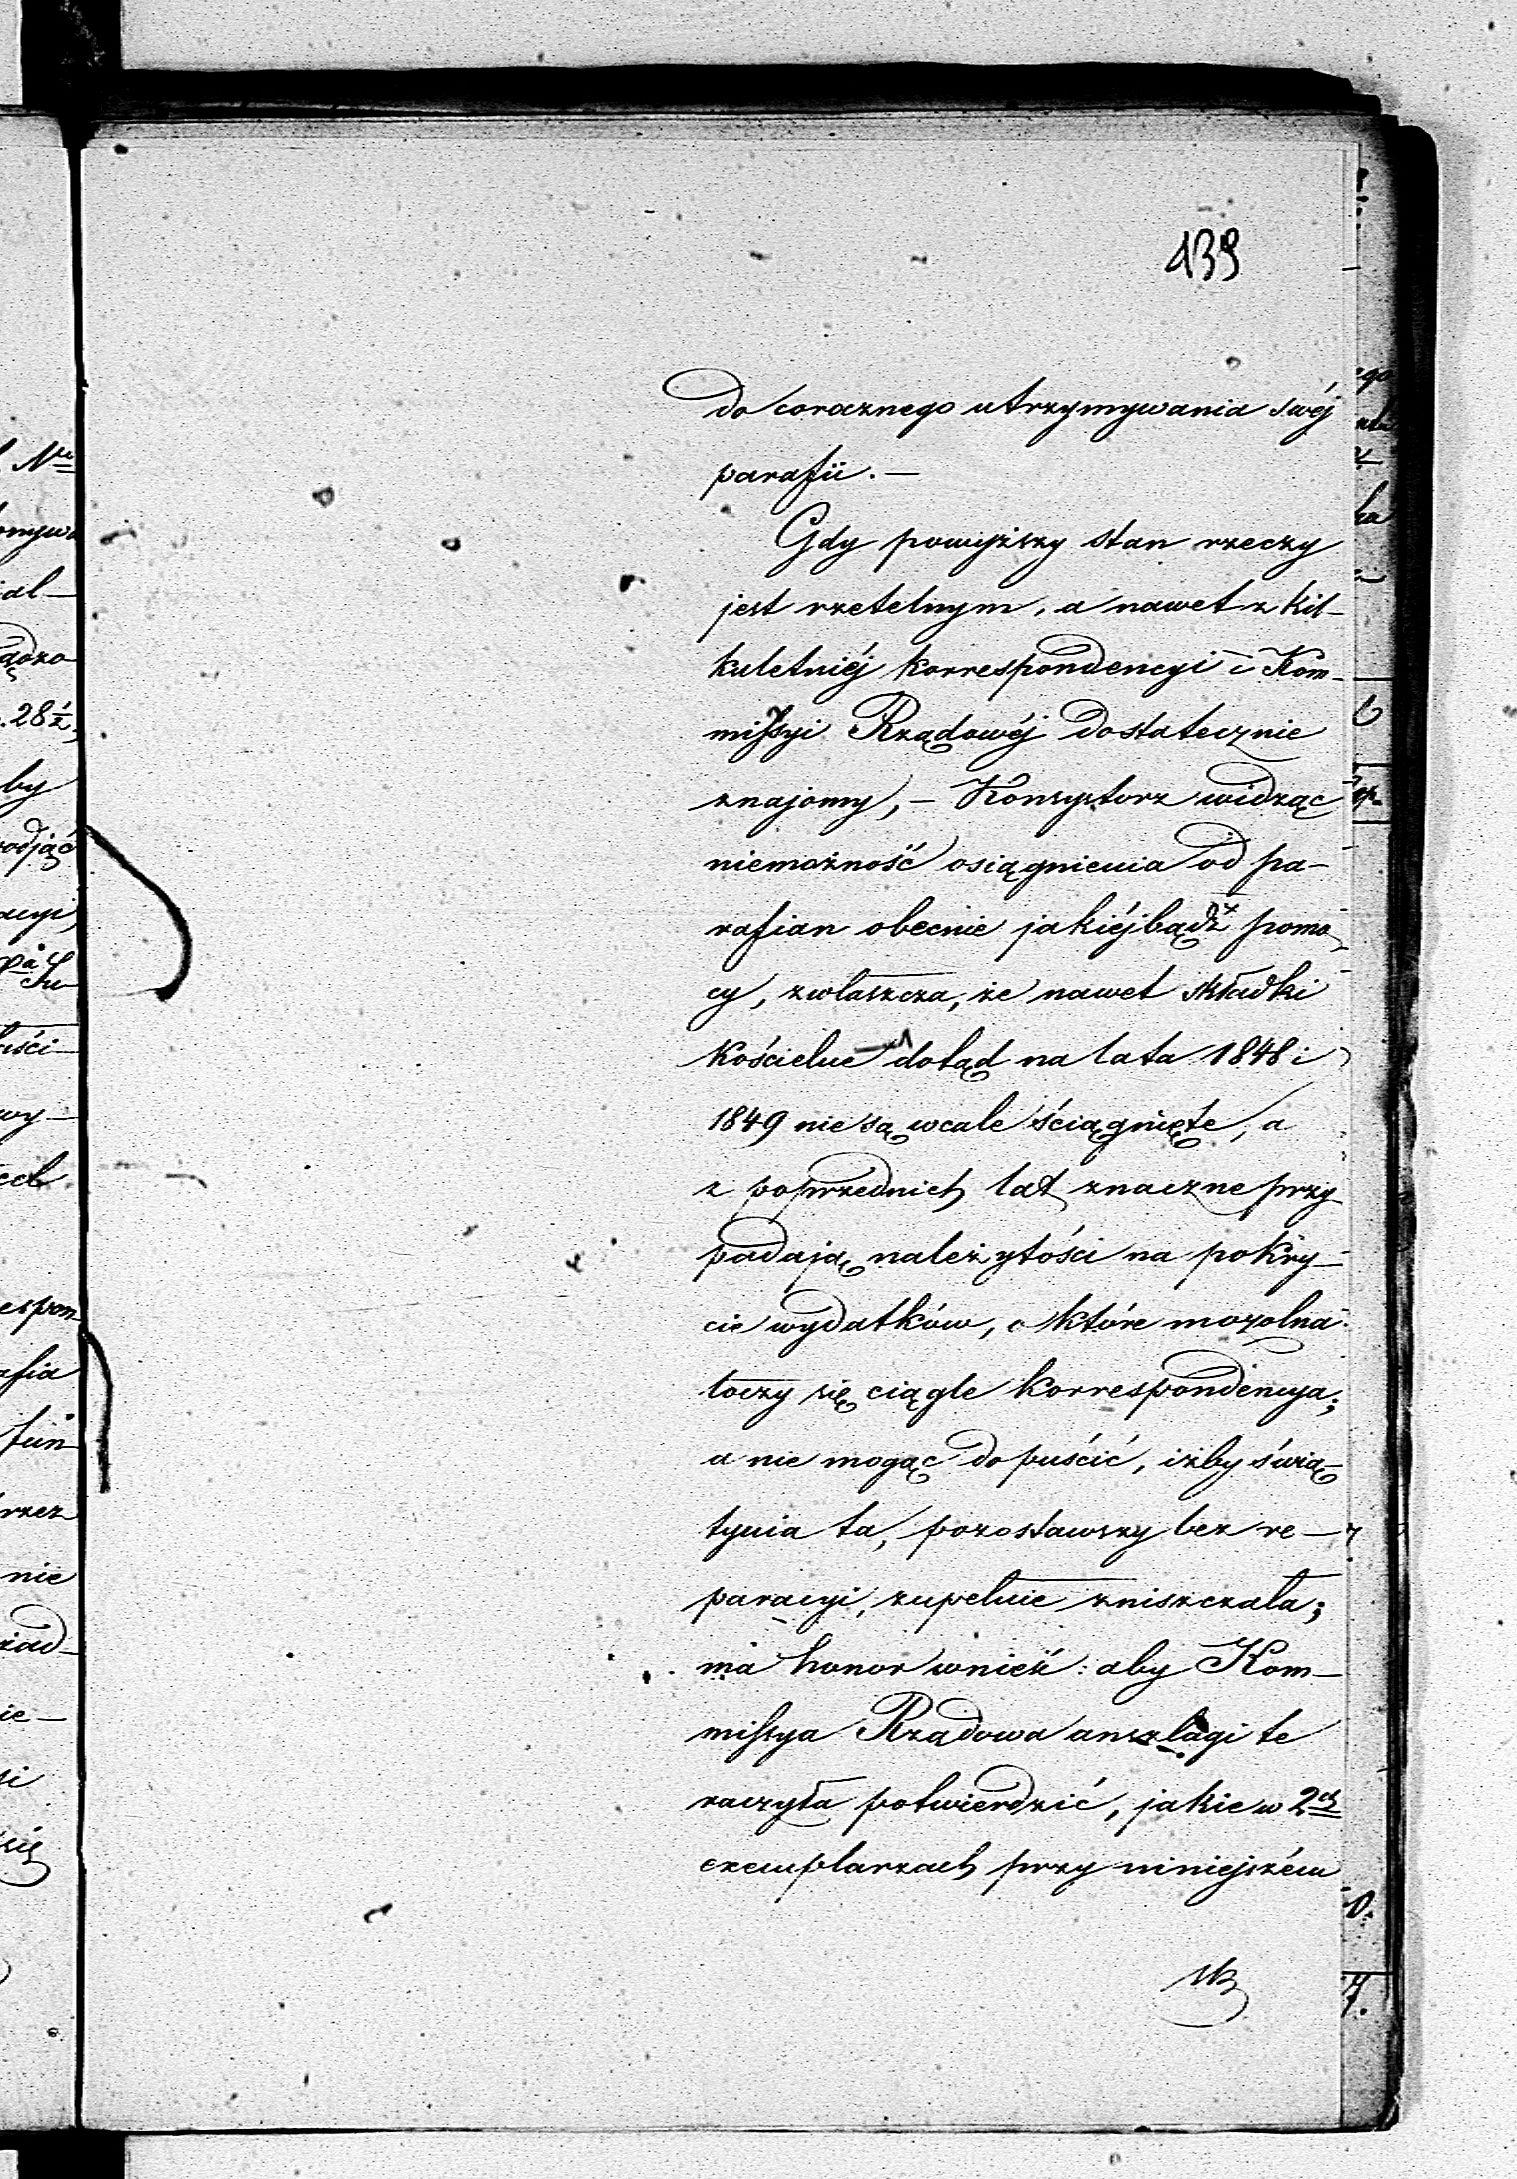 139
do corocznego utrzymywania swéj
parafii. —
Gdy powyższy stan rzeczy
jest rzetelnym, a nawet z kil-
kuletniéj korrespondencyi i Kom-
missyi Rządowéj dostatecznie
znajomy, — Konsystorz widząc
niemożność osiągnienia od pa-
rafian obecnie jakiéjbądź pomo
cy, zwłaszcza, że nawet składki
kościelne dotąd na lata 1848 i
1849 nie są wcale ściągnięte, a
z poprzednich lat znaczne przy
padają należytości na pokry-
cie wydatków, o które mozolna
toczy się ciągle korrespondencya;
a nie mogąc dopuścić, iżby świą-
tynia ta, pozostawszy bez re-
paracyi, zupełnie zniszczała;
ma honor wnieść: aby Kom-
missya Rządowa anszlagi te
raczyła potwierdzić, jakie w 2ch
exemplarzach przy niniejszém